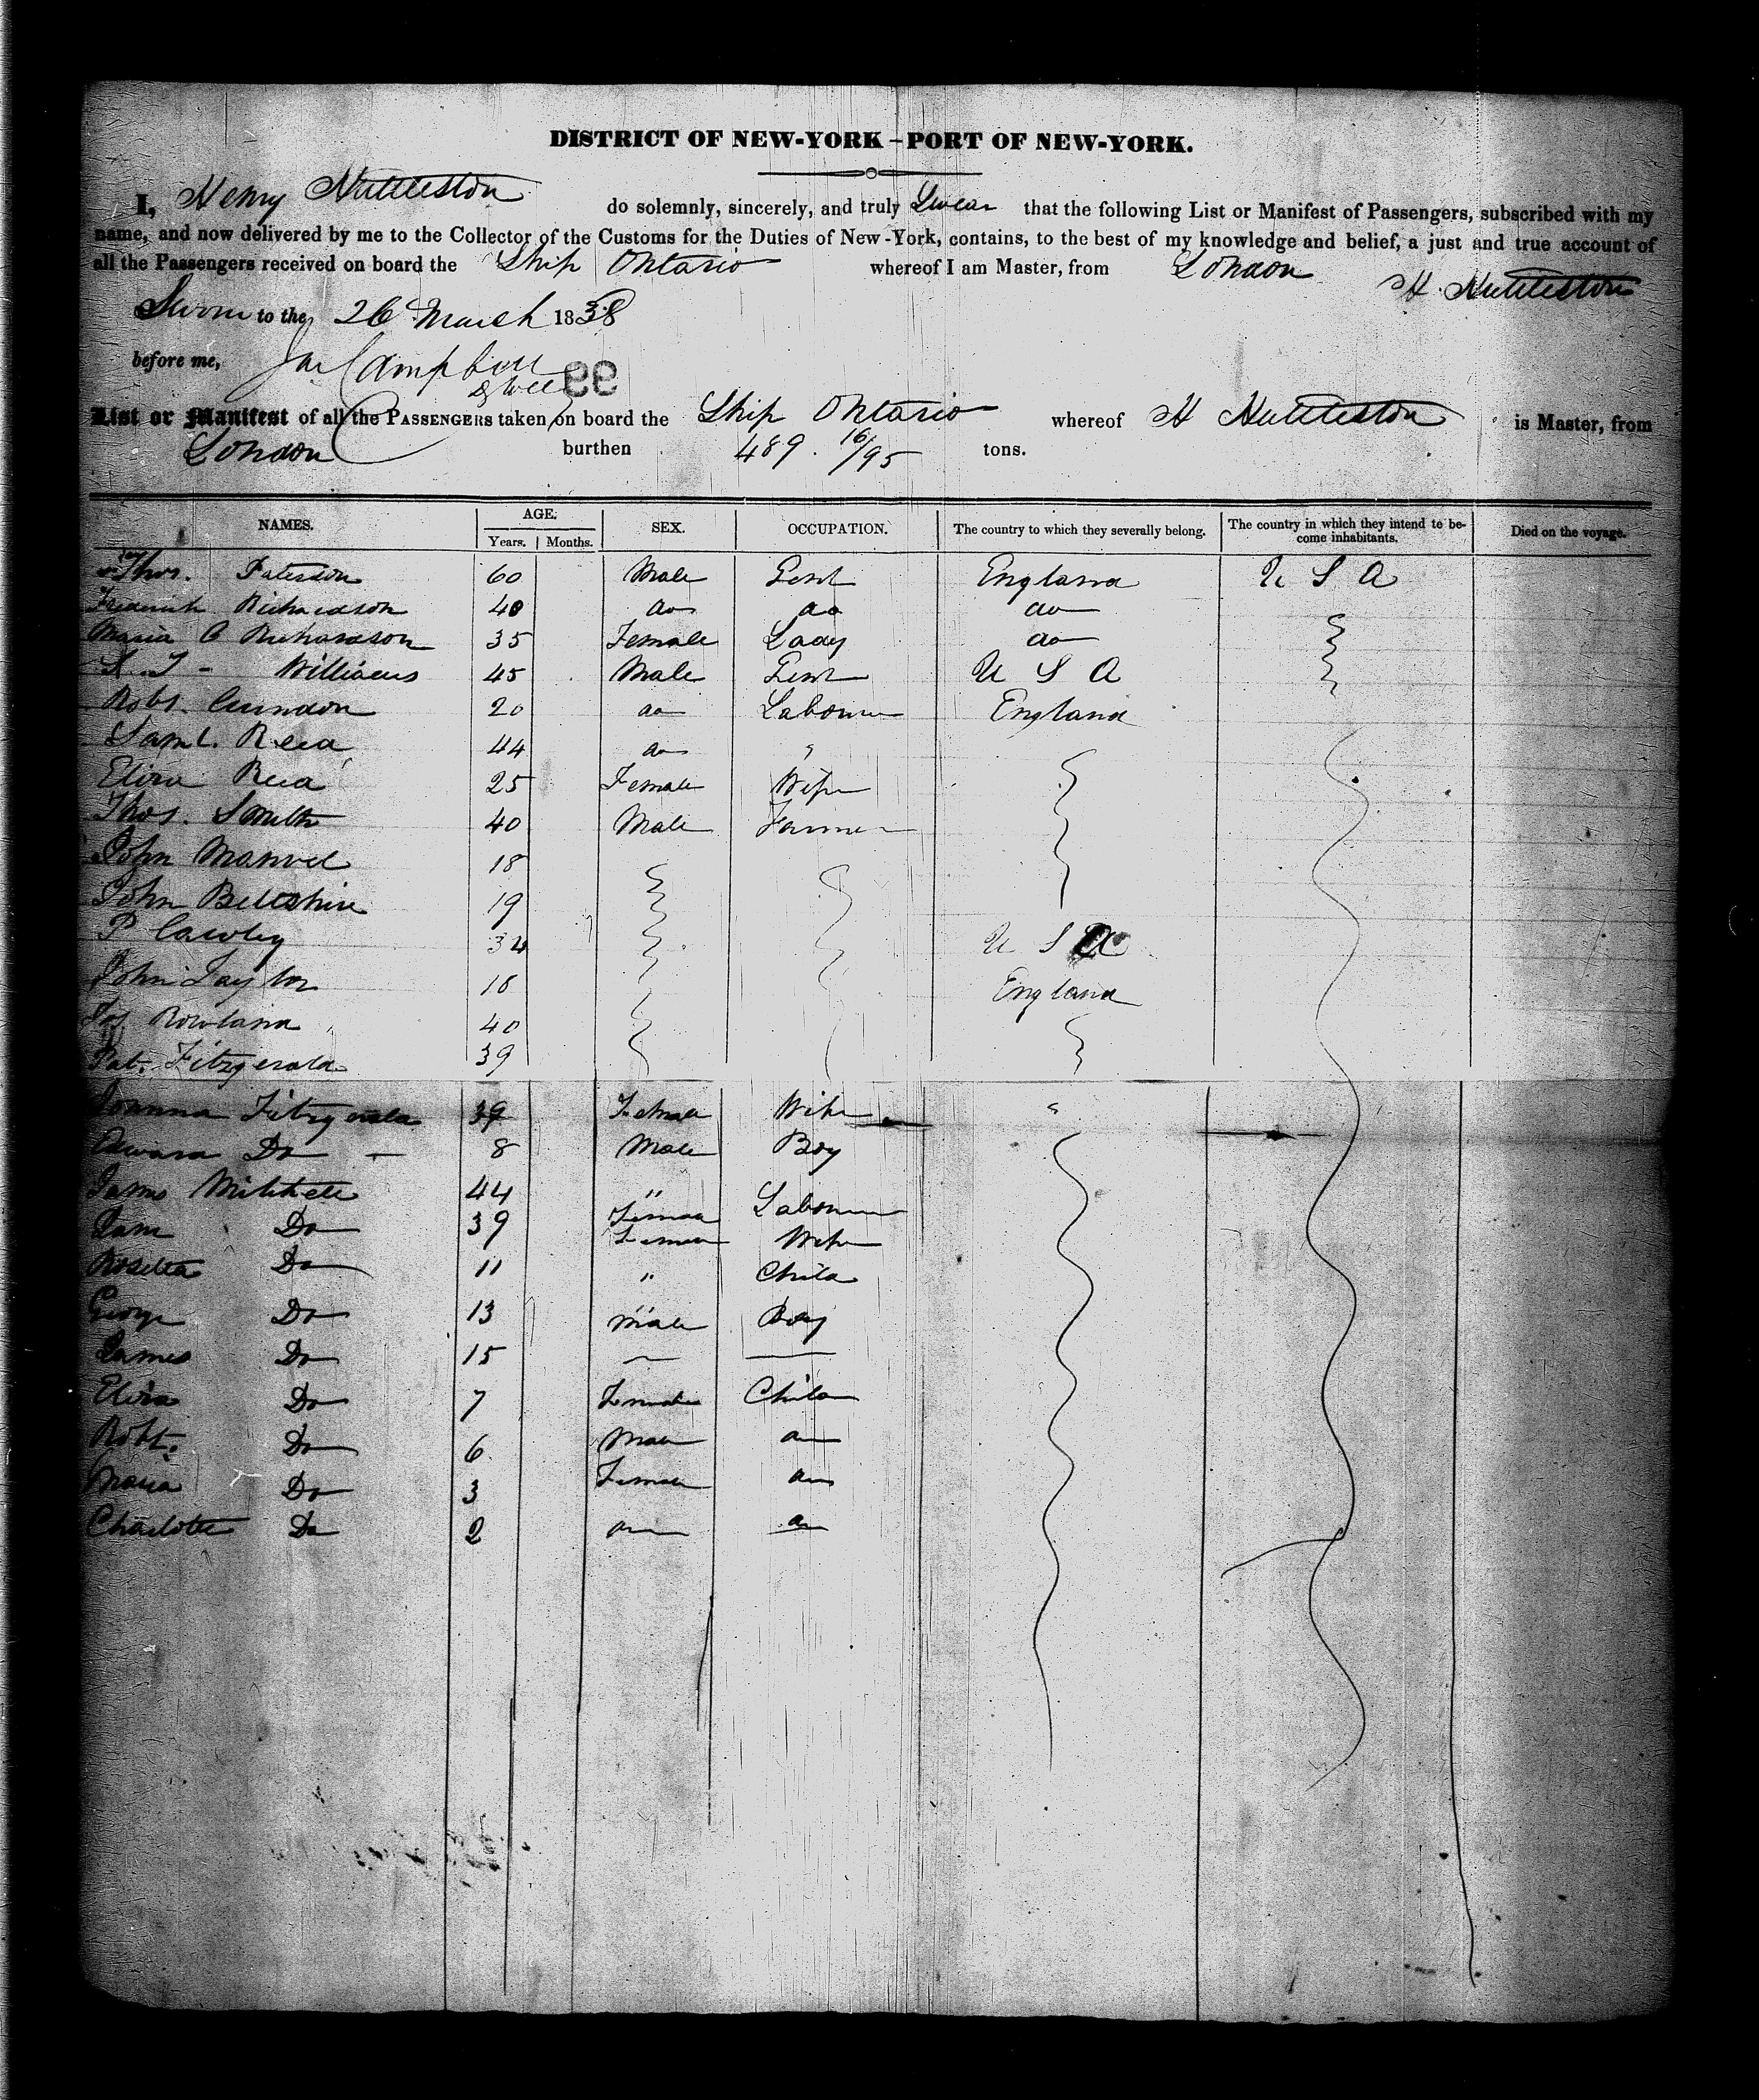 DISTRICT OF NEW-YORK – PORT OF NEW-YORK.
I, Henry Huttleston do solemnly, sincerely, and truly Swear that the following List or Manifest of Passengers, subscribed with my
name, and now delivered by me to the Collector of the Customs for the Duties of New-York, contains, to the best of my knowledge and belief, a just and true account of
all the Passengers received on board the Ship Ontario whereof I am Master, from London
H. Huttleston
Sworn to the 26 March 1838
before me, Campbell
List or Manifest of all the PASSENGERS taken on board the Ship Ontario whereof H Huttleston is Master, from
London burthen 489 . 16/95 tons.
NAMES. AGE. SEX. OCCUPATION. The country to which they severally belong. The country in which they intend to be- Died on the voyage.
Years. Months. come inhabitants.
Thos. Paterson 60 Male Gent England U S A
Frederick Richardson 40 do do do
Maria C Richardson 35 Female Lady do
Williams 45 Male Gent U S A
Robt. 20 do Labourer England
Saml. Reed 44 do "
Eliza Reed 25 Female Wife
Thos. Smith 40 Male Farmer
John Manvel 18
John Beltshire 19
P Cawley 34 U S A
John Taylor 18 England
Jas Rowland 40
Pat. Fitzgerald 39
Joanna Fitzgerald 39 Female Wife "
Edward Do 8 Male Boy
James Mitchell 44 " Labourer
Jane Do 39 Female Wife
Female
Rosetta Do 11 " Child
George Do 13 Male Boy
James Do 15
Eliza Do 7 Female Child
Robt. Do 6 Male do
Maria Do 3 Female do
Charlotte Do 2 do do